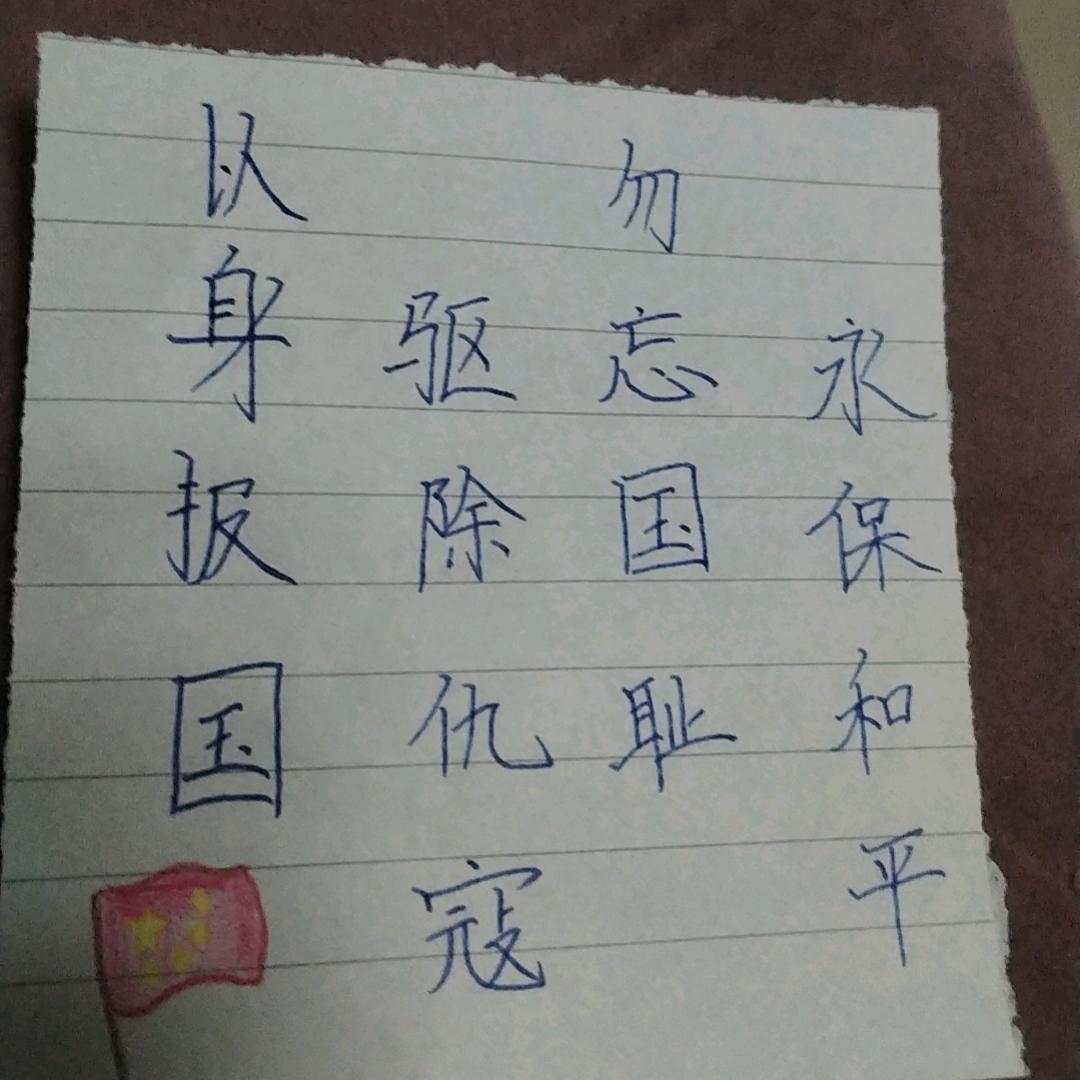 以身报国
驱除仇寇
勿忘国耻
永保和平